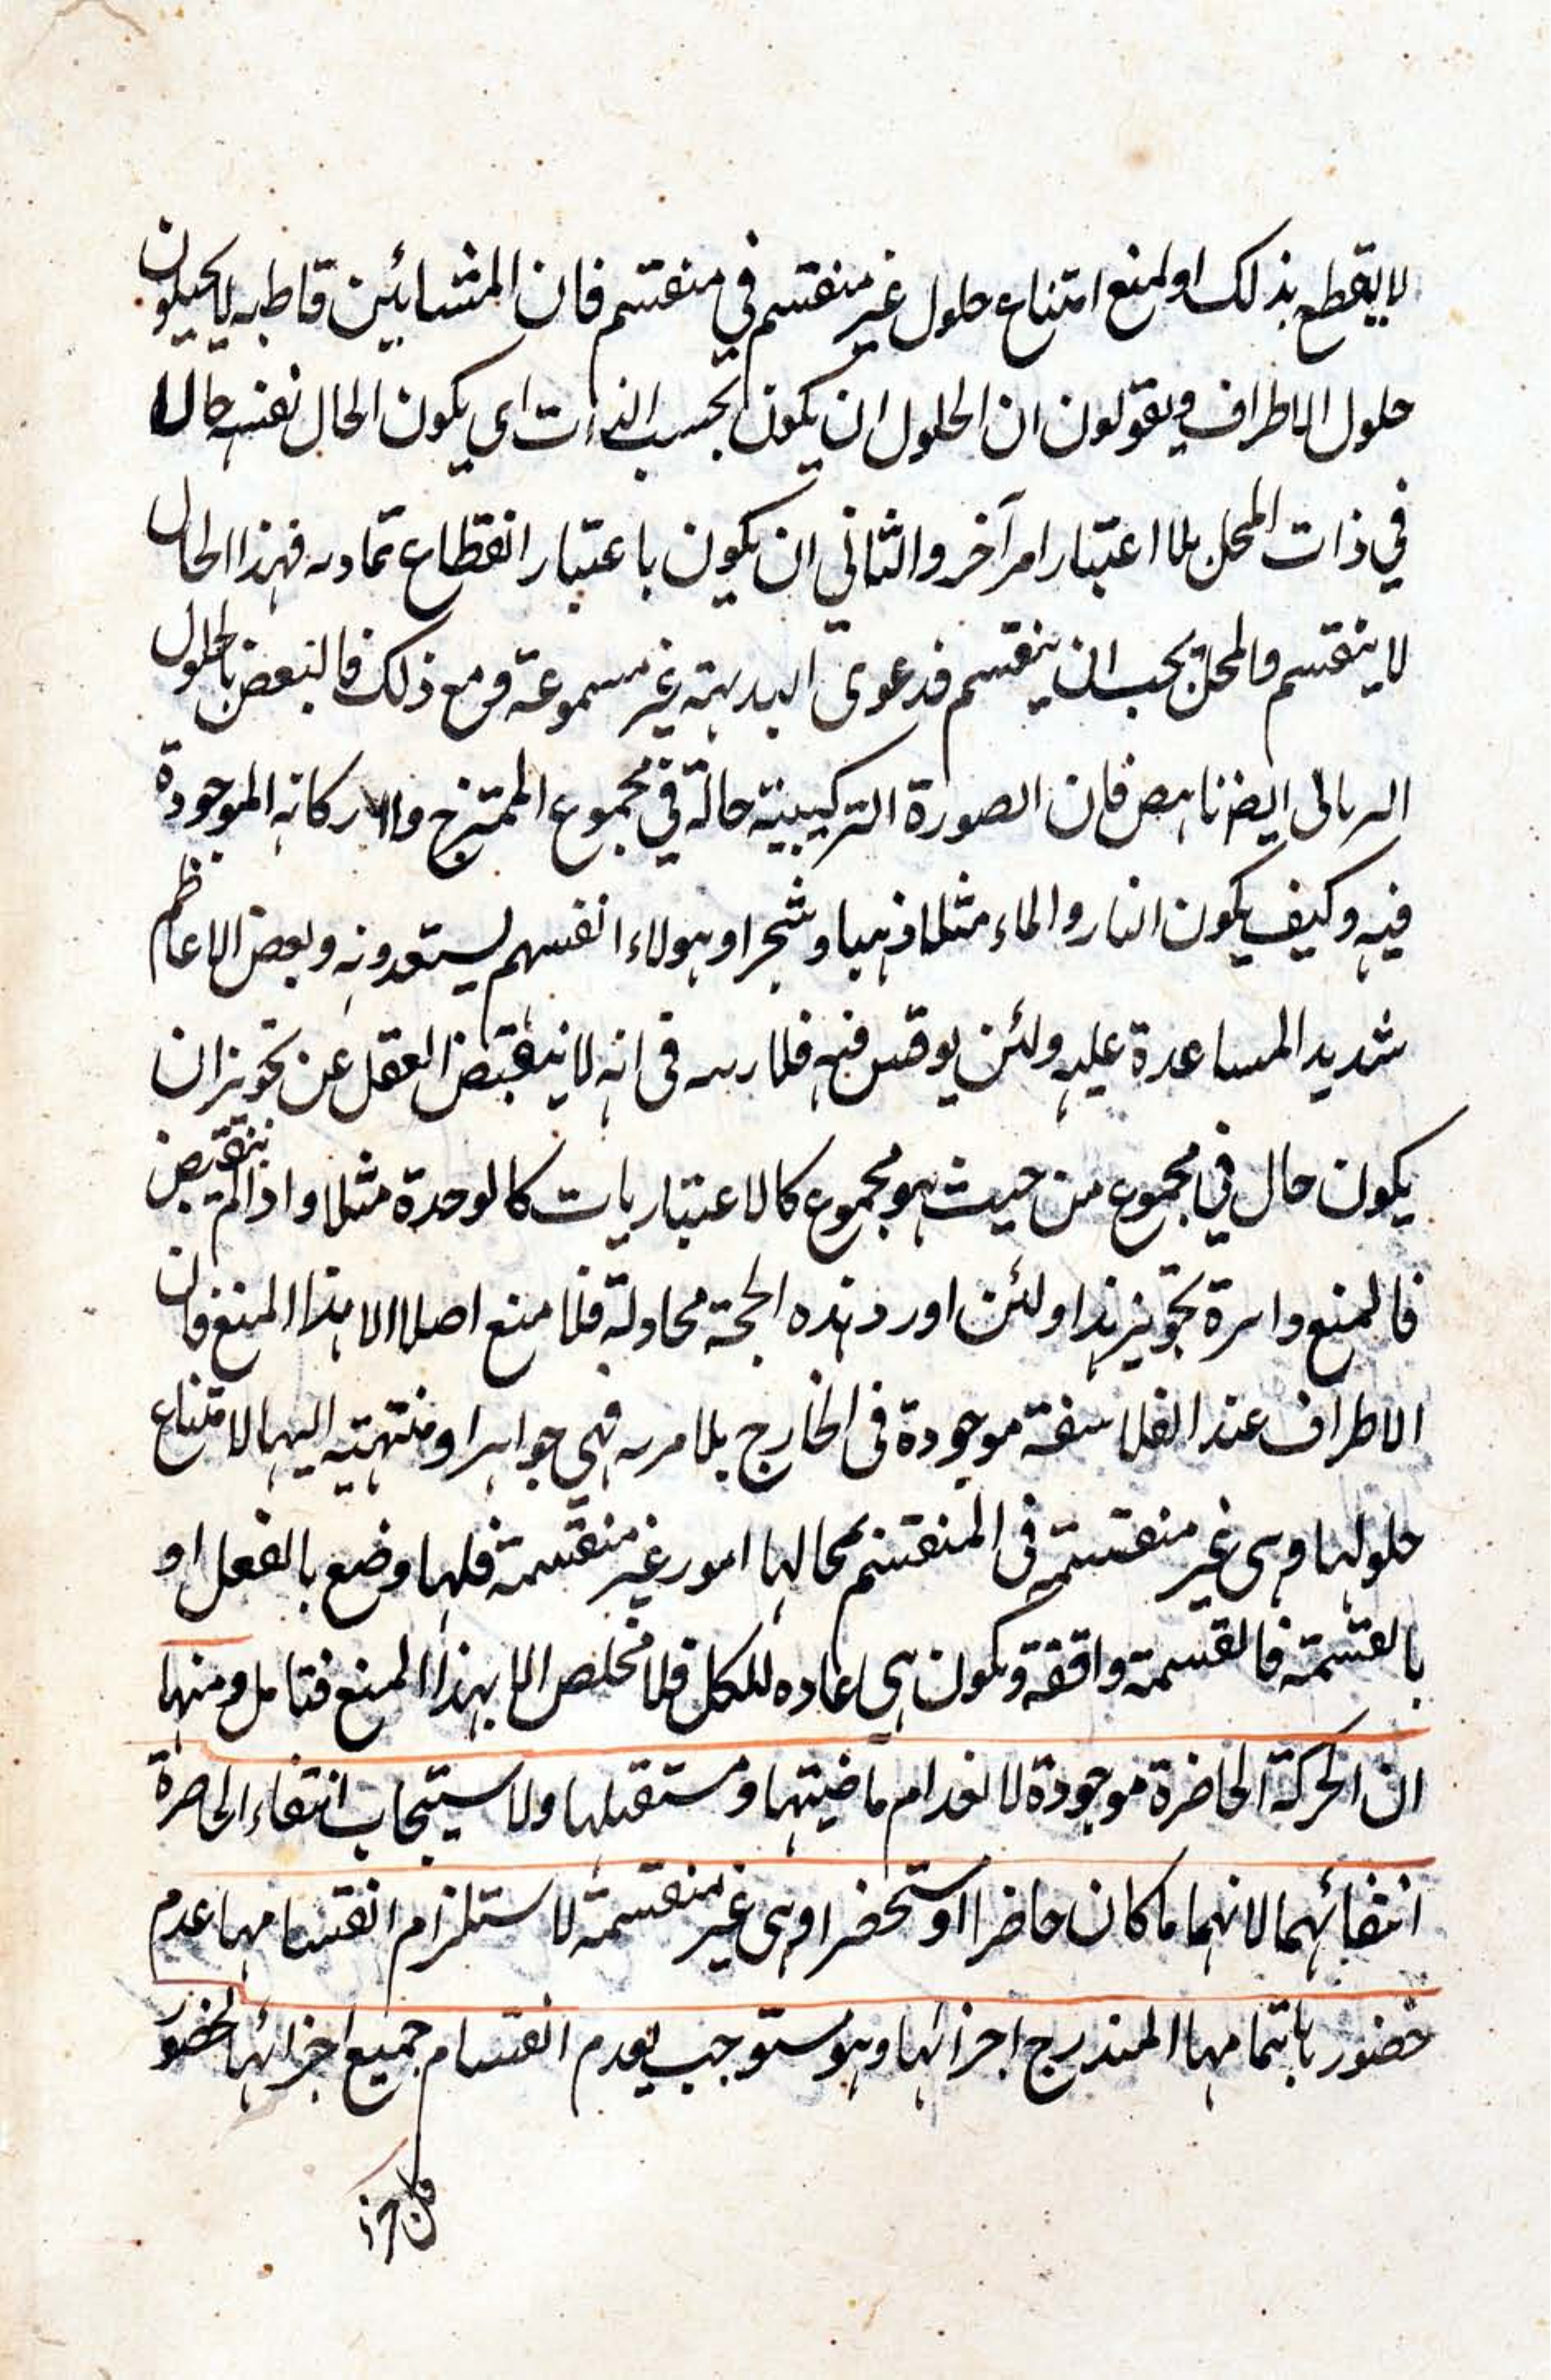 لا يقطع بذلك او لمنع امتناع حلول غير منقسم في منقسم فان المشائين قاطبه لا يحيلون
حلول الاطراف ويقولون ان الحلول ان يكون بحسب الذات اى يكون الحال نفسه حالا
في ذات المحل بلا اعتبار امر آخر والثاني ان يكون باعتبار انقطاع تماديه فهذا الحال
لا ينقسم والمحل يجب ان ينقسم فدعوى البديهة غير مسموعة ومع ذلك فالنقض بالحلول
السريانى ايضا ناهض فان الصورة التركيبية حالة في مجموع الممتزج والا ركانه الموجودة
فيه وكيف يكون النار والماء مثلا ذهبا وشجرا وهولاء انفسهم يستبعدونه وبعض الاعاظم
شديد المساعدة عليه ولئن يوقش فيه فلا ريب فى انه لا ينقبض العقل عن تجويز ان
يكون حال في مجموع من حيث هو مجموع كالاعتباريات كالوحدة مثلا واذا لم ينقبض
فالمنع دائرة تجويز هذا ولئن اورد هذه الحجة محاولة فلا منع اصلا الا هذا المنع فان
الاطراف عند الفلاسفة موجودة فى الخارج بلا مريه فهى جواهر او منتهية اليها لامتناع
حلولها وهى غير منقسمة فى المنقسم محالها امور غير منقسمة فلها وضع بالفعل او
بالقسمة فالقسمة واقفة ويكون هى عاده للكل فلا مخلص الا بهذا المنع فتامل ومنها
ان الحركة الحاضرة موجودة لانعدام ماضيتها ومستقبلها ولاستيجاب انتفاء الحاضرة
انتفائهما لانهما ما كان حاضرا او ستحضر وهى غير منقسمة لاستلزام انقسامها عدم
حضور باتمامها المندرج اجزائها وهو مستوجب لعدم انقسام جميع اجزائها لحضور